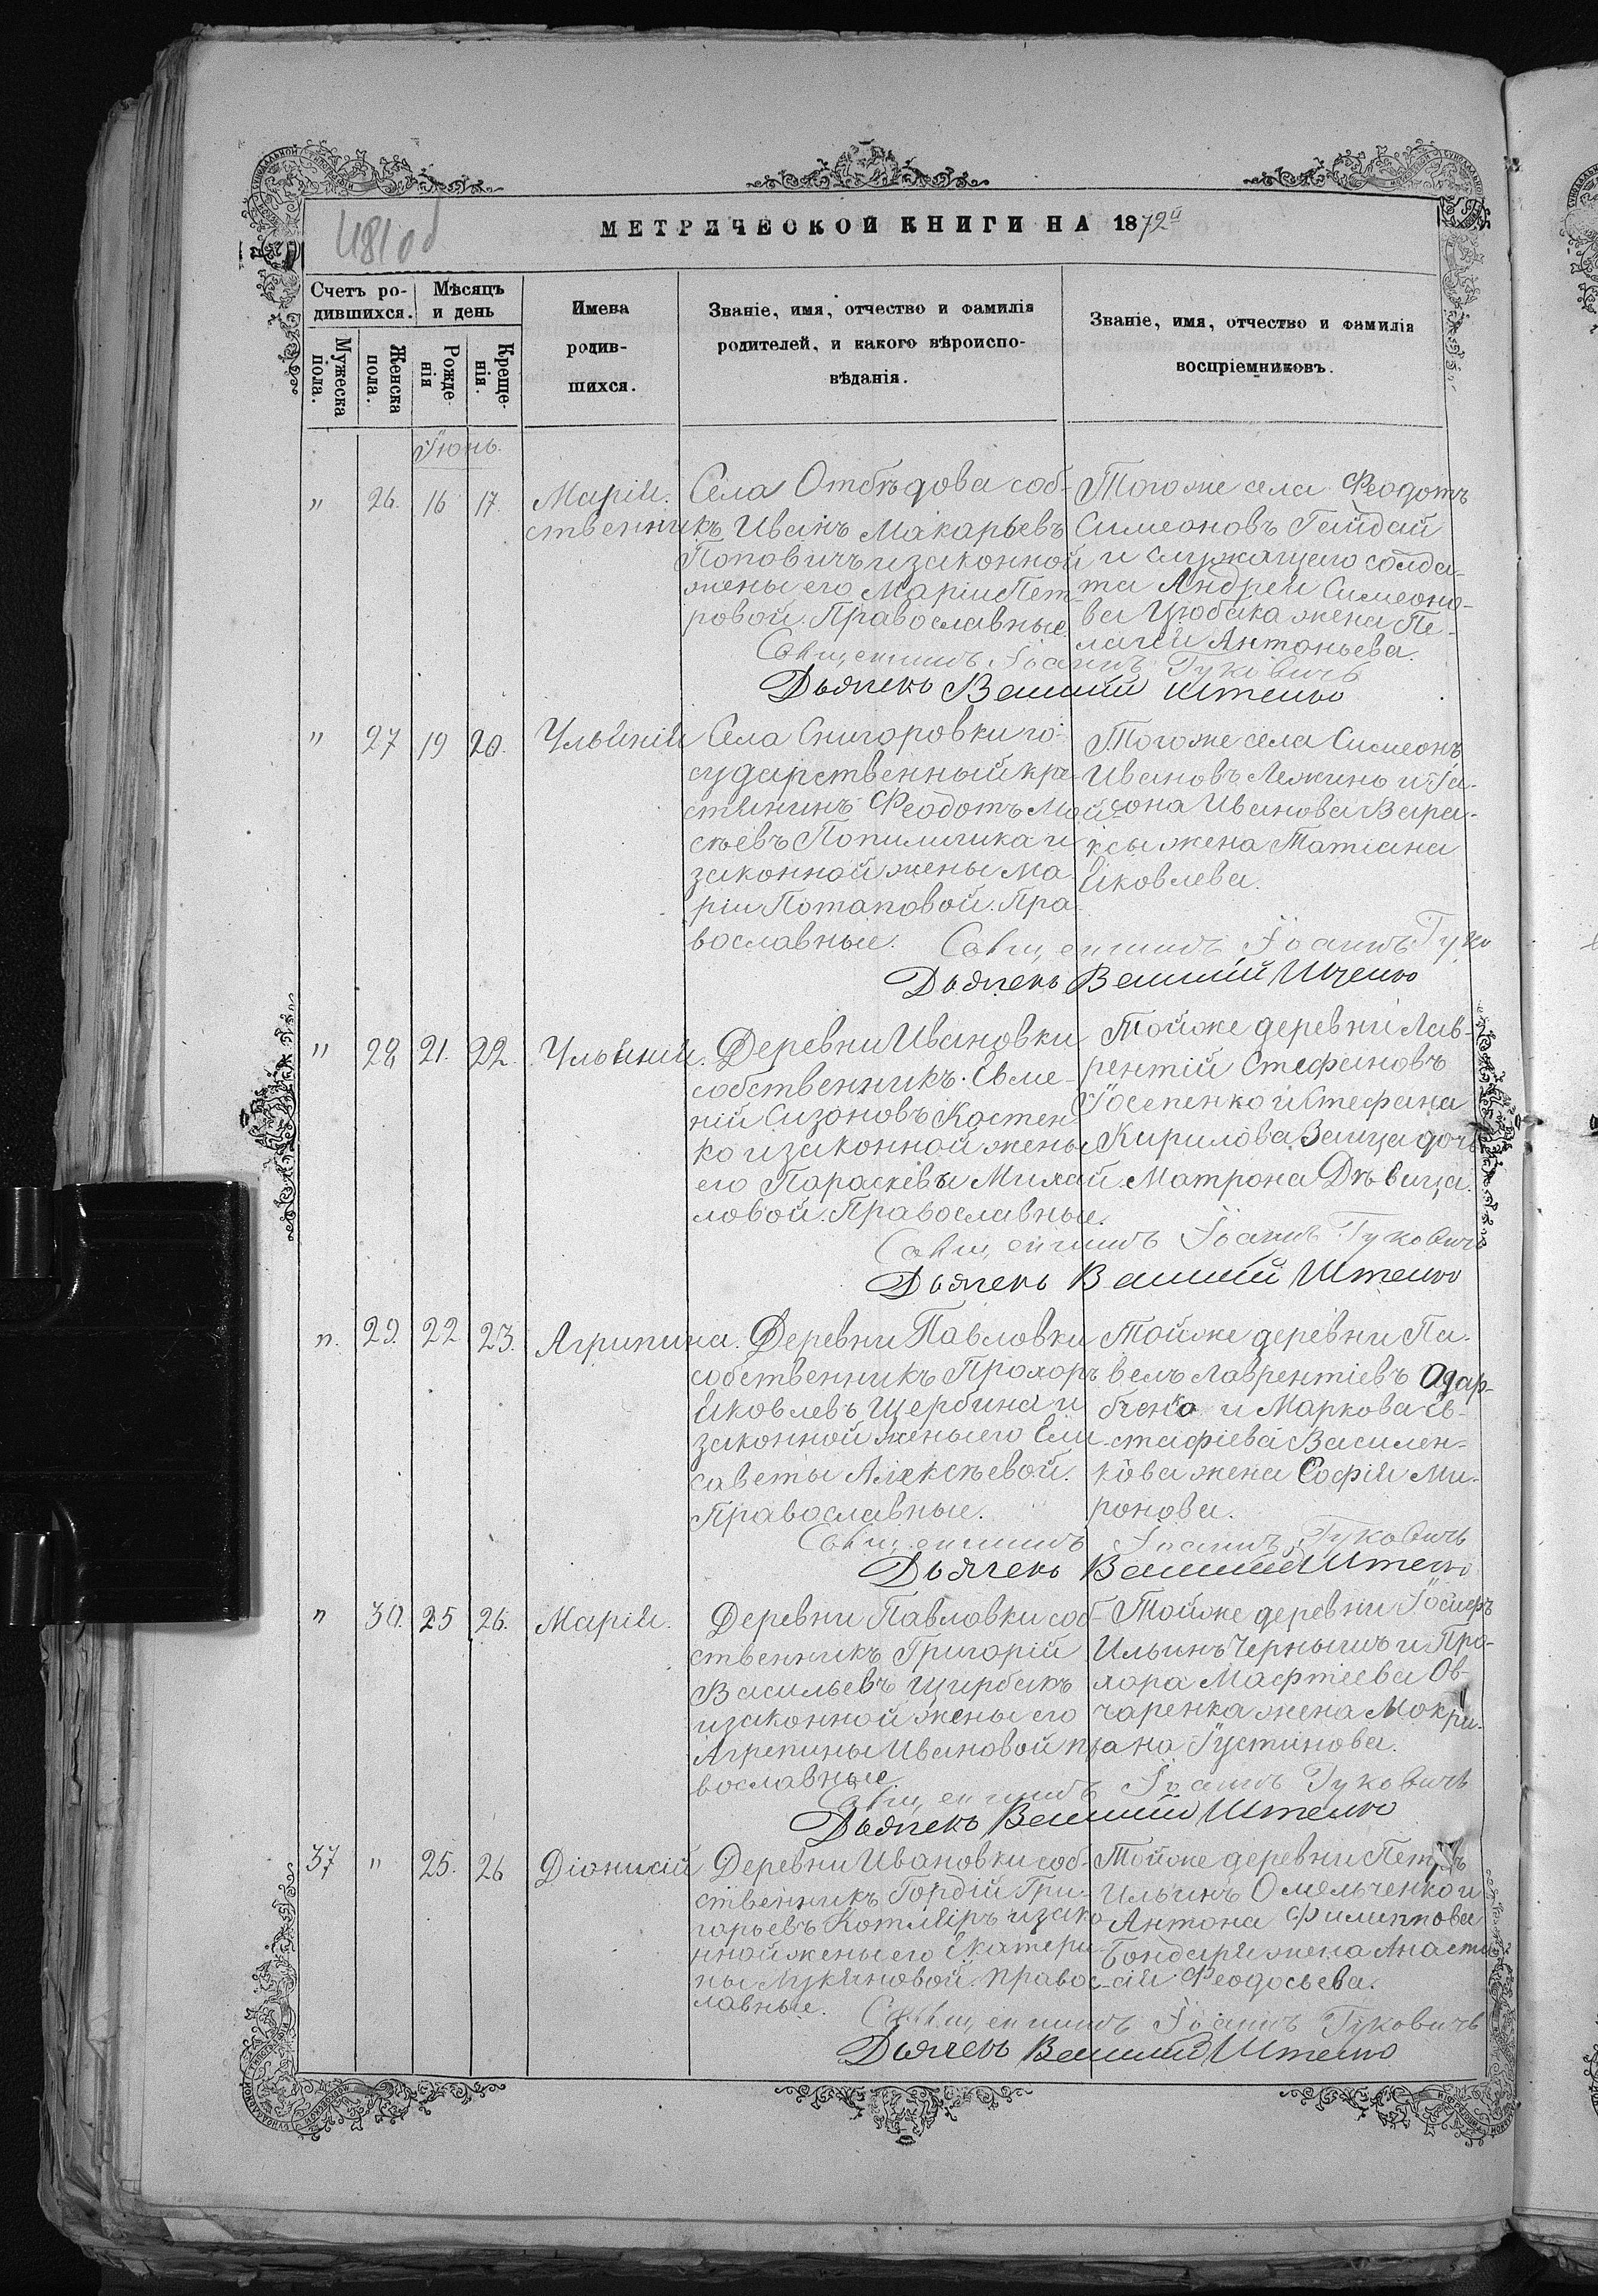 481 об
МЕТРИЧЕСКОЙ КНИГИ НА 1872й
Счетъ ро-
дившихся.
Мѣсяцъ
и день
Имена
родив-
шихся.
Званіе, имя, отчество и фамилія
родителей, и какого вѣроиспо-
вѣданія.
Званіе, имя, отчество и фамилія
воспріемниковъ.
Мужеска
пола.
Женска
пола.
Рожде-
нія
Креще-
нія.
Іюнь.
" 26. 16 17. Марія.
Села Отбѣдова соб-
ственникъ Иванъ Макарьевъ
Поповичъ и законной
жены его Маріи Пет-
ровой. Православные.
Тогоже села Феодотъ
Симеоновъ Гайдай
и служащего солда-
та Андрея Симеоно-
ва Цюбака жена Пе-
лагея Антоньева.
Священникъ Іоаннъ Гуковичъ
Дьячекъ Василий
" 27 19 20. Ульянія
Села Снигоровки го-
сударственный кре-
стянинъ Феодотъ Мой-
сѣевъ Попильшка и
законной жены Ма-
ріи Потаповой. Пра-
вославные.
Тогоже села Симеонъ
Ивановъ Лежинь и Га-
сона Иванова Вара-
ксы жена Татіана
Яковлева.
Священникъ Іоаннъ Гуко
Дьячекъ Василий
" 28 21. 22. Ульянія.
Деревни Ивановки
собственникъ Евме-
ній Сизоновъ Костен-
ко и законной жены
его Параскевы Михай-
ловой. Православные.
Тойже деревни Лав-
рентій Стефановъ
Іосепенко и Стефана
Кирилова Заица дочь
Матрона Дѣвица.
Священникъ Іоаннъ Гуковичъ
Дьячекъ Василий
" 29. 22 23. Агрипина.
Деревни Павловки
собственникъ Прохоръ
Яковлевъ Щербина и
законной жены его Ели-
саветы Алексѣевой.
Православные.
Тойже деревни Па-
велъ Лаврентіевъ Одар-
ченко и Маркова Ев-
стафіева Василен-
кова жена Софія Ми-
ронова.
Священникъ Іоаннъ Гуковичъ
Дьячекъ Василий
" 30. 25 26. Марія.
Деревни Павловки соб-
ственникъ Григорій
Васильевъ Щирбакъ
и законной жены его
Агрепины Ивановой пра-
вославные
Тойже деревни Іосиеръ
Ильинъ Чернышъ и Про-
хора Мафтіева Ов-
чаренка жена Мокри-
на Іустинова.
Священникъ Іоаннъ Гуковичъ
Дьячекъ Василий
37 " 25. 26 Діонисій
Деревни Ивановки соб-
ственникъ Гордій Гри-
горьевъ Котляръ и зако-
нной жены его Екатери-
ны Лукьяновой. Правос-
лавные.
Тойже деревни Петръ
Ильинъ Омельченко и
Антона Филиппова
Бондаря жена Анаста-
сія Феодосьева.
Священникъ Іоаннъ Гуковичъ
Дьячекъ Василий